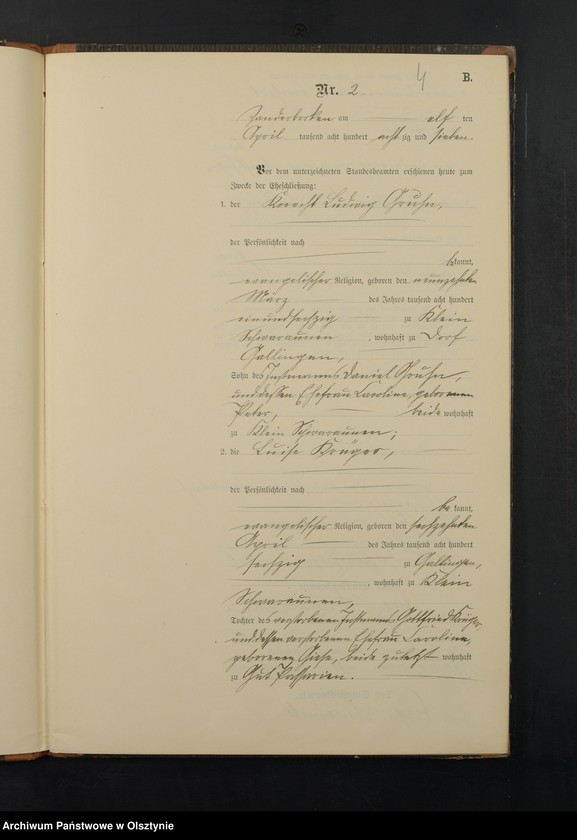 4
B.
Nr. 2
Sanderborken am elf ten
April tausend acht hundert acht zig und sieben.
Vor dem unterzeichneten Standesbeamten erschienen heute zum
Zwecke der Eheschließung:
1. der Knecht Ludwig Gruhn,
der Persönlichkeit nach
bekannt,
evangelischer Religion, geboren den neunzehnten
März des Jahres tausend acht hundert
einundsechszig zu Klein
Schwaraunen, wohnhaft zu Dorf
Gallingen,
Sohn des Instmanns Daniel Gruhn,
und dessen Ehefrau Caroline, geborenen
Peter, beide wohnhaft
zu Klein Schwaraunen;
2. die Luise Krüger,
der Persönlichkeit nach
be kannt,
evangelischer Religion, geboren den sechszehnten
April des Jahres tausend acht hundert
sechszig zu Gallingen,
, wohnhaft zu Klein
Schwaraunen,
Tochter des verstorbenen Instmanns Gottfried Krüger
und dessen verstorbenen Ehefrau Caroline,
geborenen Giese, beide zuletzt wohnhaft
zu Gut Passarien.
Archiwum Państwowe w Olsztynie